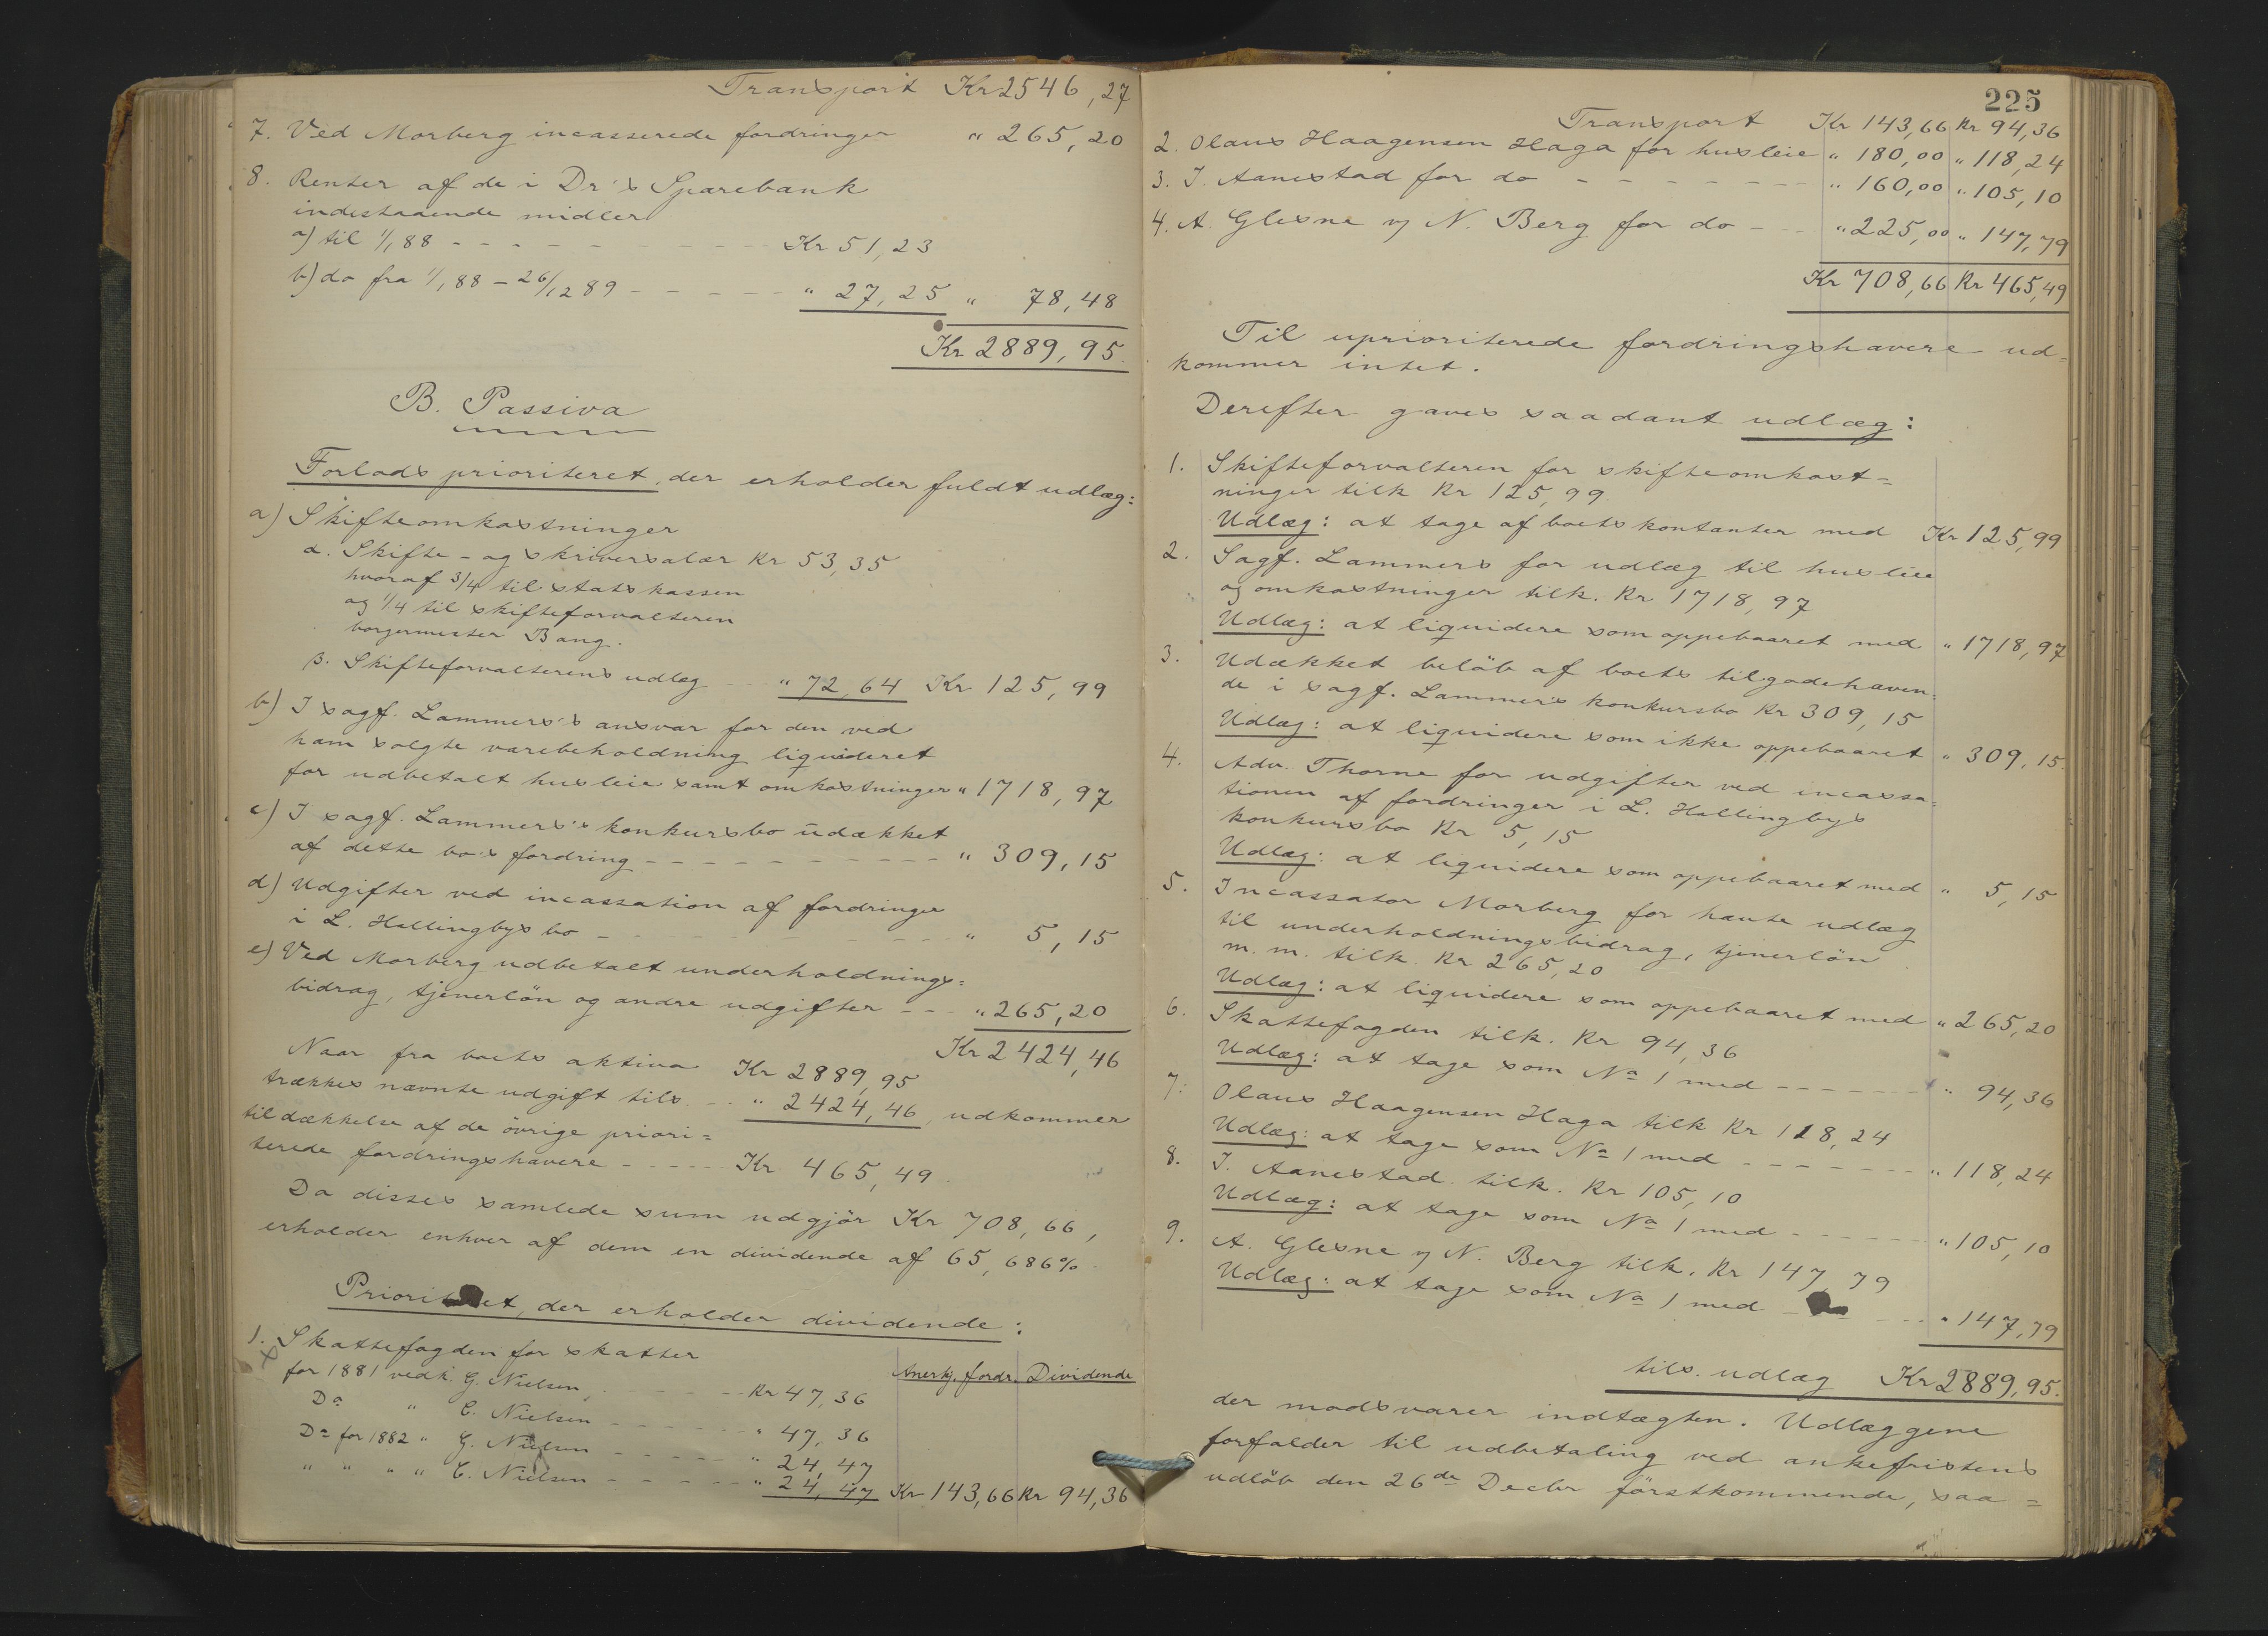 Transport Kr 2546,27
7. Ved Morberg incasserede fordringer " 265,20
8. Renter af de i Dr's Sparebank
indestaaende midler
a) til 1/1 88 - - - - - - - - Kr 51,23
b) do fra 1/1 88 - 26/12 89 - - - - - " 27,25 " 78,48
Kr 2889,95.
B. Passiva
Forlods prioriteret, der erholder fuldt udlæg:
a) Skifteomkostninger
α. Skifte- og skriversalær Kr 53,35
hvoraf 3/4 til statskassen
og 1/4 til skifteforvalteren
borgermester Bang.
β. Skifteforvalterens udlæg - - " 72,64 Kr 125,99
b) I sagf. Lammers's ansvar for den ved
ham solgte varebeholdning liquideret
for udbetalt husleie samt omkostninger " 1718,97
c) I sagf. Lammers's konkursbo udækket
af dette bo's fordring - - - - - - - - - - " 309,15
d) Udgifter ved incassation af fordringer
i L. Hallingbys bo - - - - - - - - - " 5,15
e) Ved Morberg udbetalt underholdnings=
bidrag, tjenerlön og andre udgifter - - - " 265,20
Kr 2424,46
Naar fra boets aktiva Kr 2889,95
trækkes nævnte udgift tils. - - " 2424,46, udkommer
til dækkelse af de övrige priori=
terede fordringshavere - - - - - Kr 465,49.
Da disses samlede sum udgjör Kr 708,66,
erholder enhver af dem en dividende af 65,686%.
Prioriteret, der erholder dividende:
1. Skattefogden for skatter
Anerkj. fordr. Dividende
for 1881 vedk. G. Nielsen - - - - - Kr 47,36
Do " C. Nielsen - - - - - " 47,36
Do for 1882 " G. Nielsen - - - - - " 24,47
" " " " C. Nielsen - - - - - " 24,47 Kr 143,66 Kr 94,36
225
Transport Kr 143,66 Kr 94,36
2. Olaus Haagensen Haga for husleie " 180,00 " 118,24
3. J. Aanestad for do - - - - - - - " 160,00 " 105,10
4. A. Glesne v/ N. Berg for do - - - " 225,00 " 147,79
Kr 708,66 Kr 465,49
Til uprioriterede fordringshavere ud=
kommer intet.
Derefter gaves saadant udlæg:
1. Skifteforvalteren for skifteomkost=
ninger tilk Kr 125,99.
Udlæg: at tage af boets kontanter med Kr 125,99
2. Sagf. Lammers for udlæg til husleie
og omkostninger tilk. Kr 1718,97
Udlæg: at liquidere som oppebaaret med " 1718,97
3. Udækket belöb af boets tilgodehaven=
de i sagf. Lammers's konkursbo Kr 309,15
Udlæg: at liquidere som ikke oppebaaret " 309,15.
4. Adv. Thorne for udgifter ved incassa=
tionen af fordringer i L. Hallingbys
konkursbo Kr 5,15
Udlæg: at liquidere som oppebaaret med " 5,15
5. Incassator Morberg for havte udlæg
til underholdningsbidrag, tjenerlön
m. m. tilk. Kr 265,20
Udlæg: at liquidere som oppebaaret med " 265,20
6. Skattefogden tilk. Kr 94,36
Udlæg: at tage som No 1 med - - - - - - " 94,36
7. Olaus Haagensen Haga tilk Kr 118,24
Udlæg: at tage som No 1 med - - - - - - " 118,24
8. J. Aanestad tilk. Kr 105,10
Udlæg: at tage som No 1 med - - - - - - " 105,10
9. A. Glesne v/ N. Berg tilk. Kr 147,79
Udlæg: at tage som No 1 med - - - - " 147,79
tils. udlæg Kr 2889,95.
der modsvarer indtægten. Udlæggene
forfalder til udbetaling ved ankefristens
udløb den 26de Decbr förstkommende, saa=